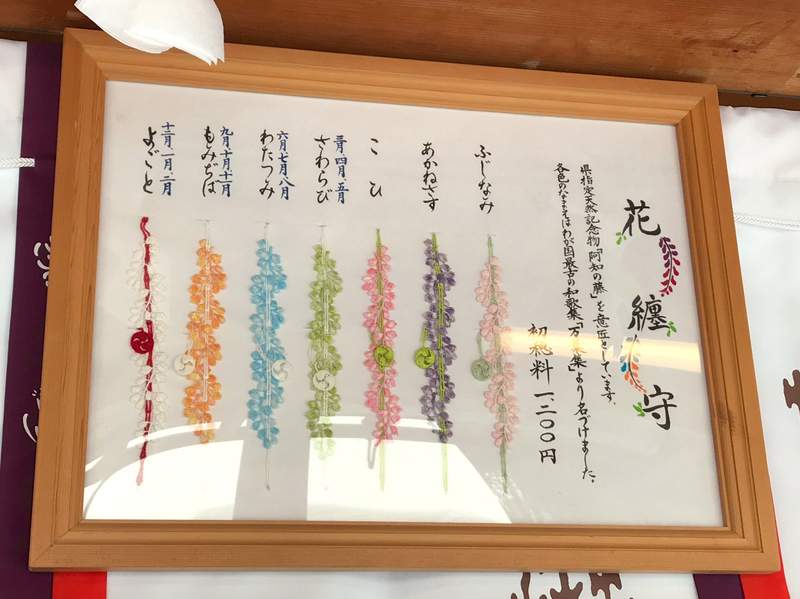 花纏守
県指定天然記念物「阿知の藤」を意匠としています。
各色のなまえはわが国最古の和歌集「万葉集」より名づけました。
初穂料 一、二〇〇円
ふじなみ
あかねさす
こひ
三月、四月、五月
さわらび
六月、七月、八月
わたつみ
九月、十月、十一月
もみぢば
十二月、一月、二月
よごと